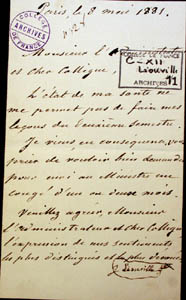 Paris, le 8 mai 1881.
COLLÈGE
ARCHIVES
DE FRANCE
COLLÈGE DE FRANCE
C-XII
Liouville
ARCHIVES 11
Monsieur l'
et cher Collègue,
L'état de ma santé ne
me permet pas de faire mes
leçons du deuxième semestre.
Je viens en conséquence, vous
prier de vouloir bien demander
pour moi au Ministre un
congé d'un ou deux mois.
Veuillez agréer, Monsieur
l'Administrateur et cher Collègue
l'expression de mes sentiments
les plus distingués et les plus dévoués.
J. Liouville